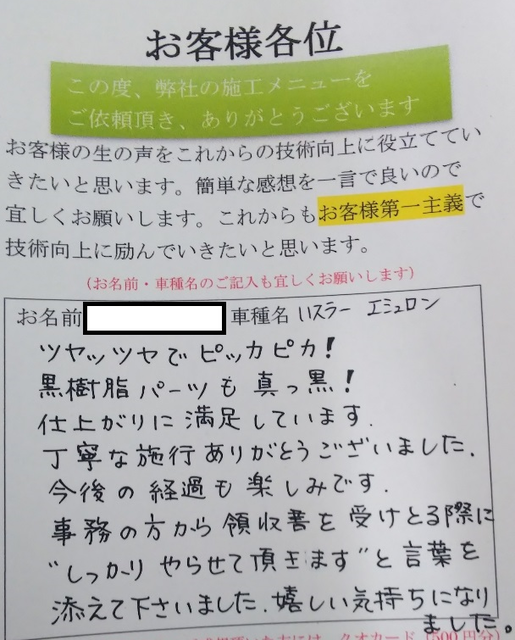 お客様各位
この度、弊社の施工メニューを
ご依頼頂き、ありがとうございます
お客様の生の声をこれからの技術向上に役立ててい
きたいと思います。簡単な感想を一言で良いので
宜しくお願いします。これからもお客様第一主義で
技術向上に励んでいきたいと思います。
(お名前・車種名のご記入も宜しくお願いします)
お名前 車種名 ハスラー エミュロン
ツヤッツヤでピッカピカ!
黒樹脂パーツも真っ黒!
仕上がりに満足しています.
丁寧な施行ありがとうございました.
今後の経過も楽しみです.
事務の方から領収書を受けとる際に
"しっかりやらせて頂きます"と言葉を
添えて下さいました.嬉しい気持ちになり
ました。
クオカード(500円分)